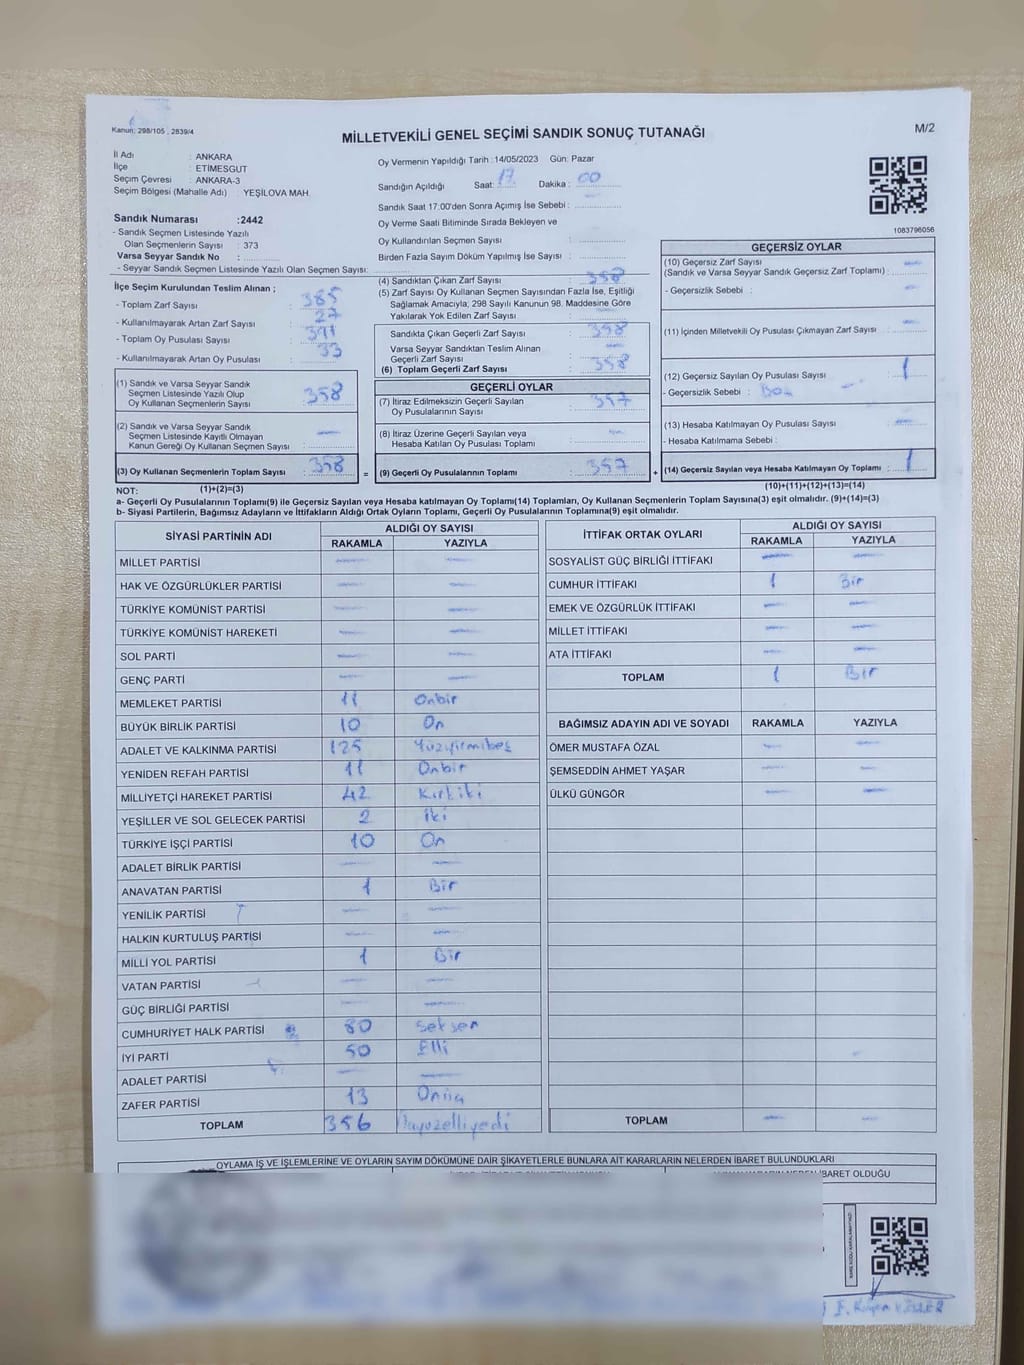 Kanun; 298/105 , 2839/4
MİLLETVEKİLİ GENEL SEÇİMİ SANDIK SONUÇ TUTANAĞI
M/2
İl Adı : ANKARA
İlçe : ETİMESGUT
Seçim Çevresi : ANKARA-3
Seçim Bölgesi (Mahalle Adı) : YEŞİLOVA MAH.
Sandık Numarası :2442
- Sandık Seçmen Listesinde Yazılı
Olan Seçmenlerin Sayısı : 373
Varsa Seyyar Sandık No :
- Seyyar Sandık Seçmen Listesinde Yazılı Olan Seçmen Sayısı:
Oy Vermenin Yapıldığı Tarih :14/05/2023 Gün: Pazar
Sandığın Açıldığı Saat: 17 Dakika : 00
Sandık Saat 17:00'den Sonra Açımış İse Sebebi :
Oy Verme Saati Bitiminde Sırada Bekleyen ve
Oy Kullandırılan Seçmen Sayısı :
Birden Fazla Sayım Döküm Yapılmış İse Sayısı :
1083796056
İlçe Seçim Kurulundan Teslim Alınan ;
- Toplam Zarf Sayısı : 385
- Kullanılmayarak Artan Zarf Sayısı : 27
- Toplam Oy Pusulası Sayısı : 391
- Kullanılmayarak Artan Oy Pusulası : 33
(1) Sandık ve Varsa Seyyar Sandık
Seçmen Listesinde Yazılı Olup
Oy Kullanan Seçmenlerin Sayısı : 358
(2) Sandık ve Varsa Seyyar Sandık
Seçmen Listesinde Kayıtlı Olmayan
Kanun Gereği Oy Kullanan Seçmen Sayısı : —
(3) Oy Kullanan Seçmenlerin Toplam Sayısı : 358 =
(1)+(2)=(3)
(4) Sandıktan Çıkan Zarf Sayısı : 358
(5) Zarf Sayısı Oy Kullanan Seçmen Sayısından Fazla İse, Eşitliği
Sağlamak Amacıyla; 298 Sayılı Kanunun 98. Maddesine Göre
Yakılarak Yok Edilen Zarf Sayısı : —
Sandıkta Çıkan Geçerli Zarf Sayısı : 358
Varsa Seyyar Sandıktan Teslim Alınan
Geçerli Zarf Sayısı : —
(6) Toplam Geçerli Zarf Sayısı : 358
GEÇERLİ OYLAR
(7) İtiraz Edilmeksizin Geçerli Sayılan
Oy Pusulalarının Sayısı : 357
(8) İtiraz Üzerine Geçerli Sayılan veya
Hesaba Katılan Oy Pusulası Toplamı : —
(9) Geçerli Oy Pusulalarının Toplamı : 357 +
GEÇERSİZ OYLAR
(10) Geçersiz Zarf Sayısı
(Sandık ve Varsa Seyyar Sandık Geçersiz Zarf Toplamı) : —
- Geçersizlik Sebebi : —
(11) İçinden Milletvekili Oy Pusulası Çıkmayan Zarf Sayısı : —
(12) Geçersiz Sayılan Oy Pusulası Sayısı : 1
- Geçersizlik Sebebi :
(13) Hesaba Katılmayan Oy Pusulası Sayısı : —
- Hesaba Katılmama Sebebi :
(14) Geçersiz Sayılan veya Hesaba Katılmayan Oy Toplamı : 1
(10)+(11)+(12)+(13)=(14)
NOT:
a- Geçerli Oy Pusulalarının Toplamı(9) ile Geçersiz Sayılan veya Hesaba katılmayan Oy Toplamı(14) Toplamları, Oy Kullanan Seçmenlerin Toplam Sayısına(3) eşit olmalıdır. (9)+(14)=(3)
b- Siyasi Partilerin, Bağımsız Adayların ve İttifakların Aldığı Ortak Oyların Toplamı, Geçerli Oy Pusulalarının Toplamına(9) eşit olmalıdır.
SİYASİ PARTİNİN ADI ALDIĞI OY SAYISI
RAKAMLA YAZIYLA
MİLLET PARTİSİ — —
HAK VE ÖZGÜRLÜKLER PARTİSİ — —
TÜRKİYE KOMÜNİST PARTİSİ — —
TÜRKİYE KOMÜNİST HAREKETİ — —
SOL PARTİ — —
GENÇ PARTİ — —
MEMLEKET PARTİSİ 11 Onbir
BÜYÜK BİRLİK PARTİSİ 10 On
ADALET VE KALKINMA PARTİSİ 125 Yüzyirmibeş
YENİDEN REFAH PARTİSİ 11 Onbir
MİLLİYETÇİ HAREKET PARTİSİ 42 Kırkiki
YEŞİLLER VE SOL GELECEK PARTİSİ 2 İki
TÜRKİYE İŞÇİ PARTİSİ 10 On
ADALET BİRLİK PARTİSİ — —
ANAVATAN PARTİSİ 1 Bir
YENİLİK PARTİSİ — —
HALKIN KURTULUŞ PARTİSİ — —
MİLLİ YOL PARTİSİ 1 Bir
VATAN PARTİSİ — —
GÜÇ BİRLİĞİ PARTİSİ — —
CUMHURİYET HALK PARTİSİ 80 Seksen
İYİ PARTİ 50 Elli
ADALET PARTİSİ — —
ZAFER PARTİSİ 13 Onüç
TOPLAM 356 Üçyüzelliyedi
İTTİFAK ORTAK OYLARI ALDIĞI OY SAYISI
RAKAMLA YAZIYLA
SOSYALİST GÜÇ BİRLİĞİ İTTİFAKI — —
CUMHUR İTTİFAKI 1 Bir
EMEK VE ÖZGÜRLÜK İTTİFAKI — —
MİLLET İTTİFAKI — —
ATA İTTİFAKI — —
TOPLAM 1 Bir
BAĞIMSIZ ADAYIN ADI VE SOYADI RAKAMLA YAZIYLA
ÖMER MUSTAFA ÖZAL — —
ŞEMSEDDİN AHMET YAŞAR — —
ÜLKÜ GÜNGÖR — —
TOPLAM — —
OYLAMA İŞ VE İŞLEMLERİNE VE OYLARIN SAYIM DÖKÜMÜNE DAİR ŞİKAYETLERLE BUNLARA AİT KARARLARIN NELERDEN İBARET BULUNDUKLARI
İBARET OLDUĞU